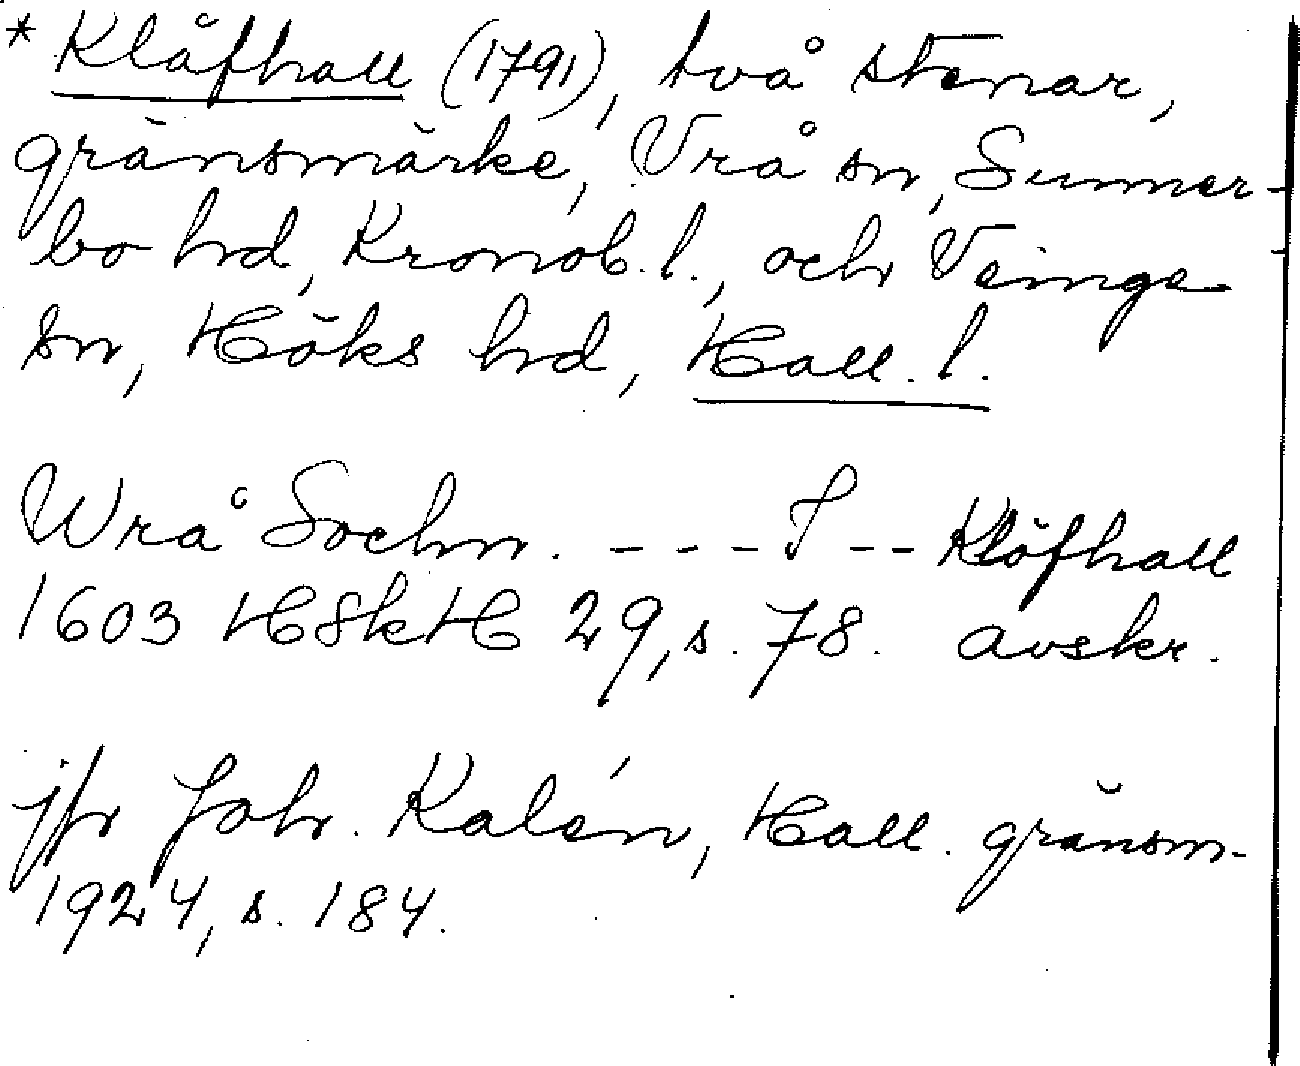 * Klåfhall (1791), två stenar,
gränsmärke, Vrå sn, Sunner-
bo hd, Kronob. l., och Veinge
sn, Höks hd, Hall. l.
Wrå Sochn. - - - - S - - Klöfhall
1603 HSkH 29, s. 78. avskr.
jfr Joh. Kalén, Hall. gränsm.
1924, s. 184.